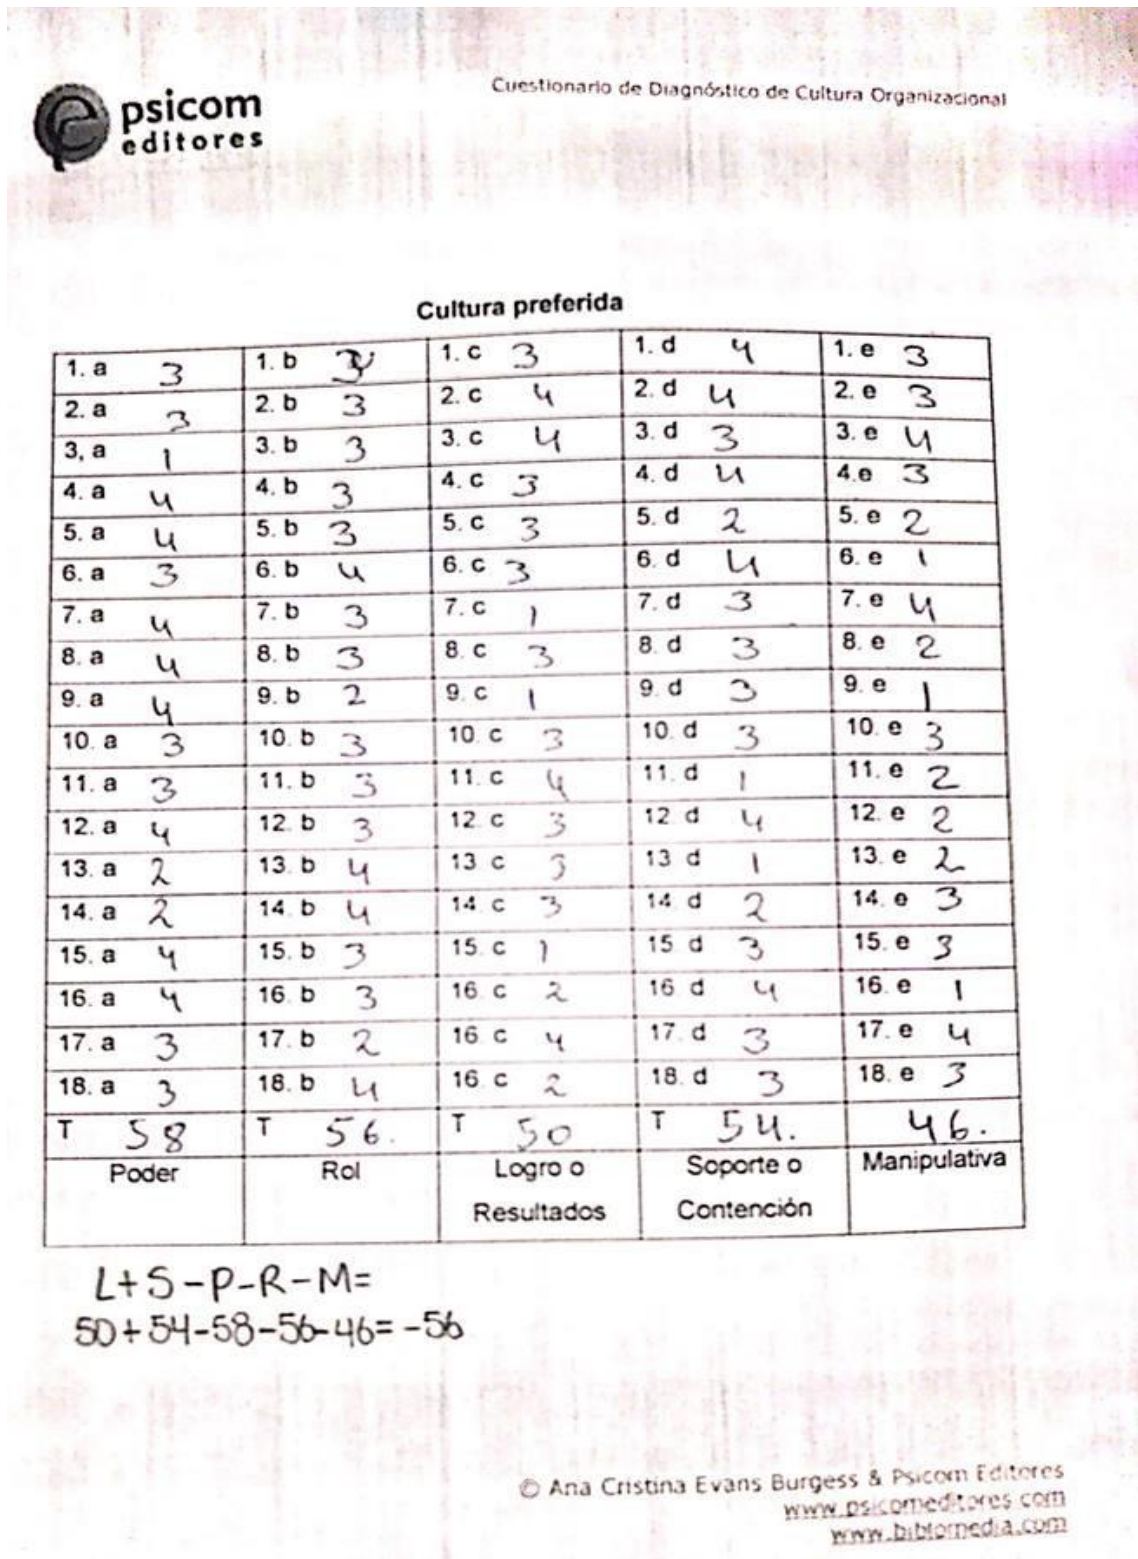 psicom
editores
Cuestionario de Diagnóstico de Cultura Organizacional
Cultura preferida
1. a 3 1. b 1. c 3 1. d 4 1. e 3
2. a 3 2. b 3 2. c 4 2. d 4 2. e 3
3, a 1 3. b 3 3. c 4 3. d 3 3. e 4
4. a 4 4. b 3 4. c 3 4. d 4 4.e 3
5. a 4 5. b 3 5. c 3 5. d 2 5. e 2
6. a 3 6. b 4 6. c 3 6. d 4 6. e 1
7. a 4 7. b 3 7. c 1 7. d 3 7. e 4
8. a 4 8. b 3 8. c 3 8. d 3 8. e 2
9. a 4 9. b 2 9. c 1 9. d 3 9. e 1
10. a 3 10. b 3 10. c 3 10. d 3 10. e 3
11. a 3 11. b 3 11. c 4 11. d 1 11. e 2
12. a 4 12. b 3 12. c 3 12. d 4 12. e 2
13. a 2 13. b 4 13. c 3 13 d 1 13. e 2
14. a 2 14. b 4 14. c 3 14. d 2 14. e 3
15. a 4 15. b 3 15. c 1 15 d 3 15. e 3
16. a 4 16. b 3 16. c 2 16 d 4 16. e 1
17. a 3 17. b 2 16. c 4 17. d 3 17. e 4
18. a 3 18. b 4 16. c 2 18. d 3 18. e 3
T 58 T 56. T 50 T 54. 46.
Poder Rol Logro o Soporte o Manipulativa
Resultados Contención
L+S-P-R-M=
50+54-58-56-46=-56
© Ana Cristina Evans Burgess & Psicom Editores
www.psicomeditores.com
www.bibliomedia.com